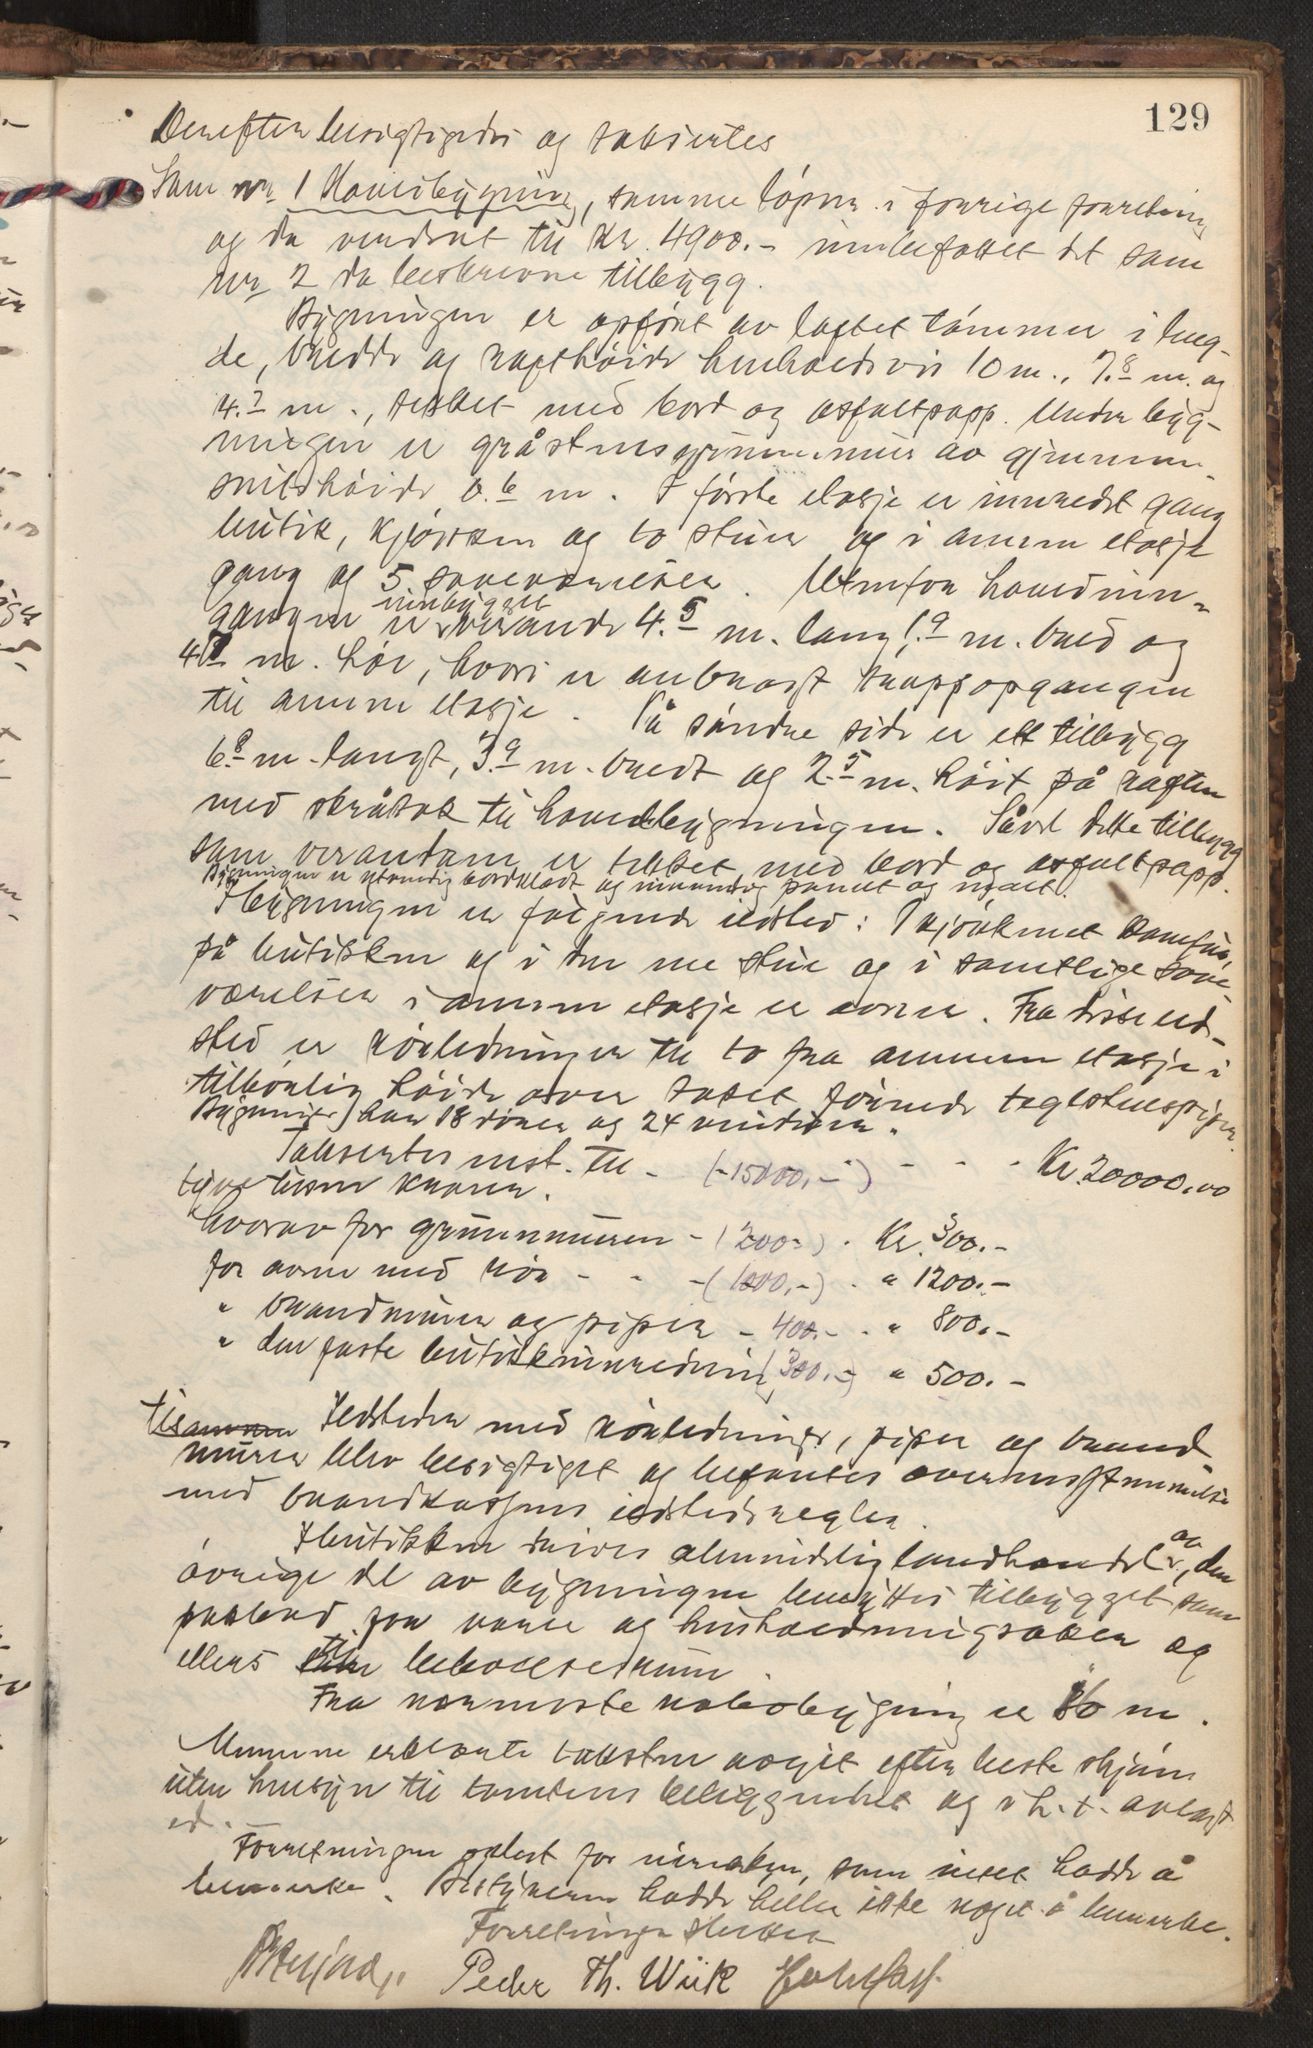 129
Derefter besigtigedes og taksertes
Som nr. 1 Hovedbygning, samme løpnr. i forrige forretning
og da vurdert til kr. 4900.- innbefattet det som
nr. 2 da beskrevne tilbygg.
Bygningen er opført av laftet tømmer i leng-
de, bredde og rafthøide henholdsvis 10 m., 7.8 m. og
4.7 m., tekket med bord og asfaltpapp. Under byg-
ningen er gråstensgrunnmur av gjennem-
snitshøide 0.6 m. I første etasje er innredet gang
butik, kjøkken og to stuer og i annen etasje
gang og 5 soveværelser. Utenfor hovedinn-
gangen er innbygget veranda 4.5 m. lang, 1.9 m. bred og
4.7 m. høi, hvori er anbragt trappopgangen
til annen etasje. På søndre side er ett tilbygg
6.8 m. langt, 3.9 m. bredt og 2.5 m. høit på raften
med skråtak til hovedbygningen. Såvel dette tilbygg
som verandaen er tekket med bord og asfaltpapp.
Bygningen er utvendig bordklædt og innvendig panelt og malt.
I bygningen er følgende ildsted: I kjøkkenet komfur,
på butikken og i den ene stue og i samtlige sove-
værelser i annen etasje er ovner. Fra disse ild-
sted er rørledninger til to fra annen etasje i
tilbørlig høide over taket førende teglstenspiper.
Bygningen har 18 dører og 24 vinduer.
Taksertes nest. til - (-15000,-) - - - Kr. 20000.00
tyve tusen kroner.
hvorav for grunnmuren - (200-) - Kr. 300.-
for ovner med rør - - - (1000,-) - " 1200.-
" brandmurer og piper - 400.- - " 800.-
" den faste butikkinnredning (300.-) " 500.-
Ildsteder med rørledninger, piper og brand-
murer blev besigtiget og befantes overensstemmelse
med brandkassens ildstedsregler.
I butikken drives almindelig landhandel og, den
øvrige del av bygningen benyttes tilbygget som
pakbod for varer og husholdningssaker og
ellers til beboelsesrum.
Fra nærmeste nabobygning er 86 m.
Mennene erklærte taksten avgit efter beste skjønn
uten hensyn til tomtens beliggenhet og i h. t. avlagt
ed.
Forretningen oplest for eieren, som intet hadde å
bemerke. Bestyreren hadde heller ikke noget å bemerke.
Forretningen sluttet
Peder Th. Wiik